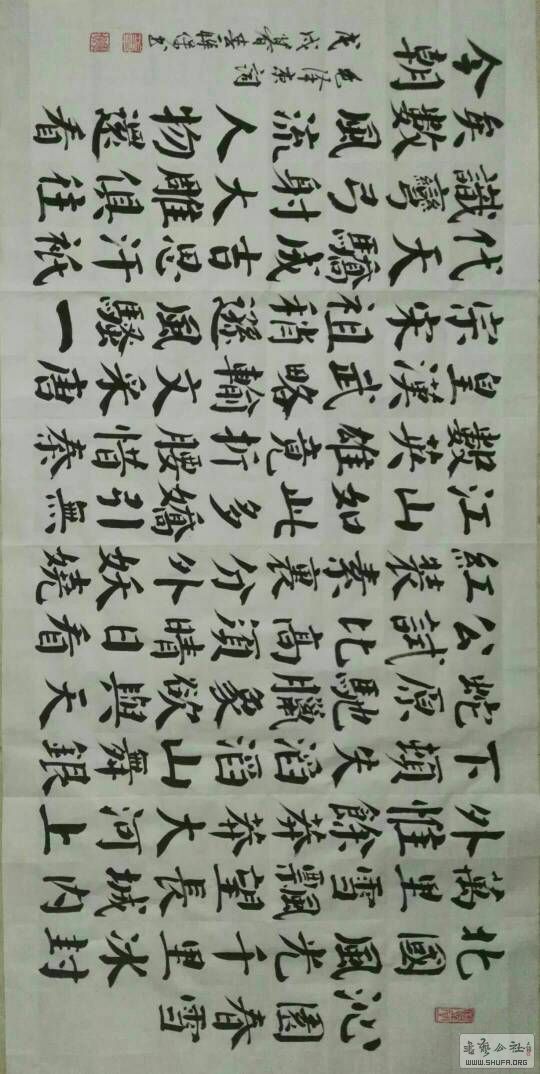 沁園春雪
北國風光千里冰封
萬里雪飄望長城內
外惟餘莽莽大河上
下頓失滔滔山舞銀
蛇原馳臘象欲與天
公試比高須晴日看
紅裝素裹分外妖嬈
江山如此多嬌引無
數英雄竟折腰惜秦
皇漢武略輸文采唐
宗宋祖稍遜風騷一
代天驕成吉思汗祇
識彎弓射大雕俱往
矣數風流人物還看
今朝
毛澤東詞
戊戌
书艺公社
WWW.SHUFA.ORG